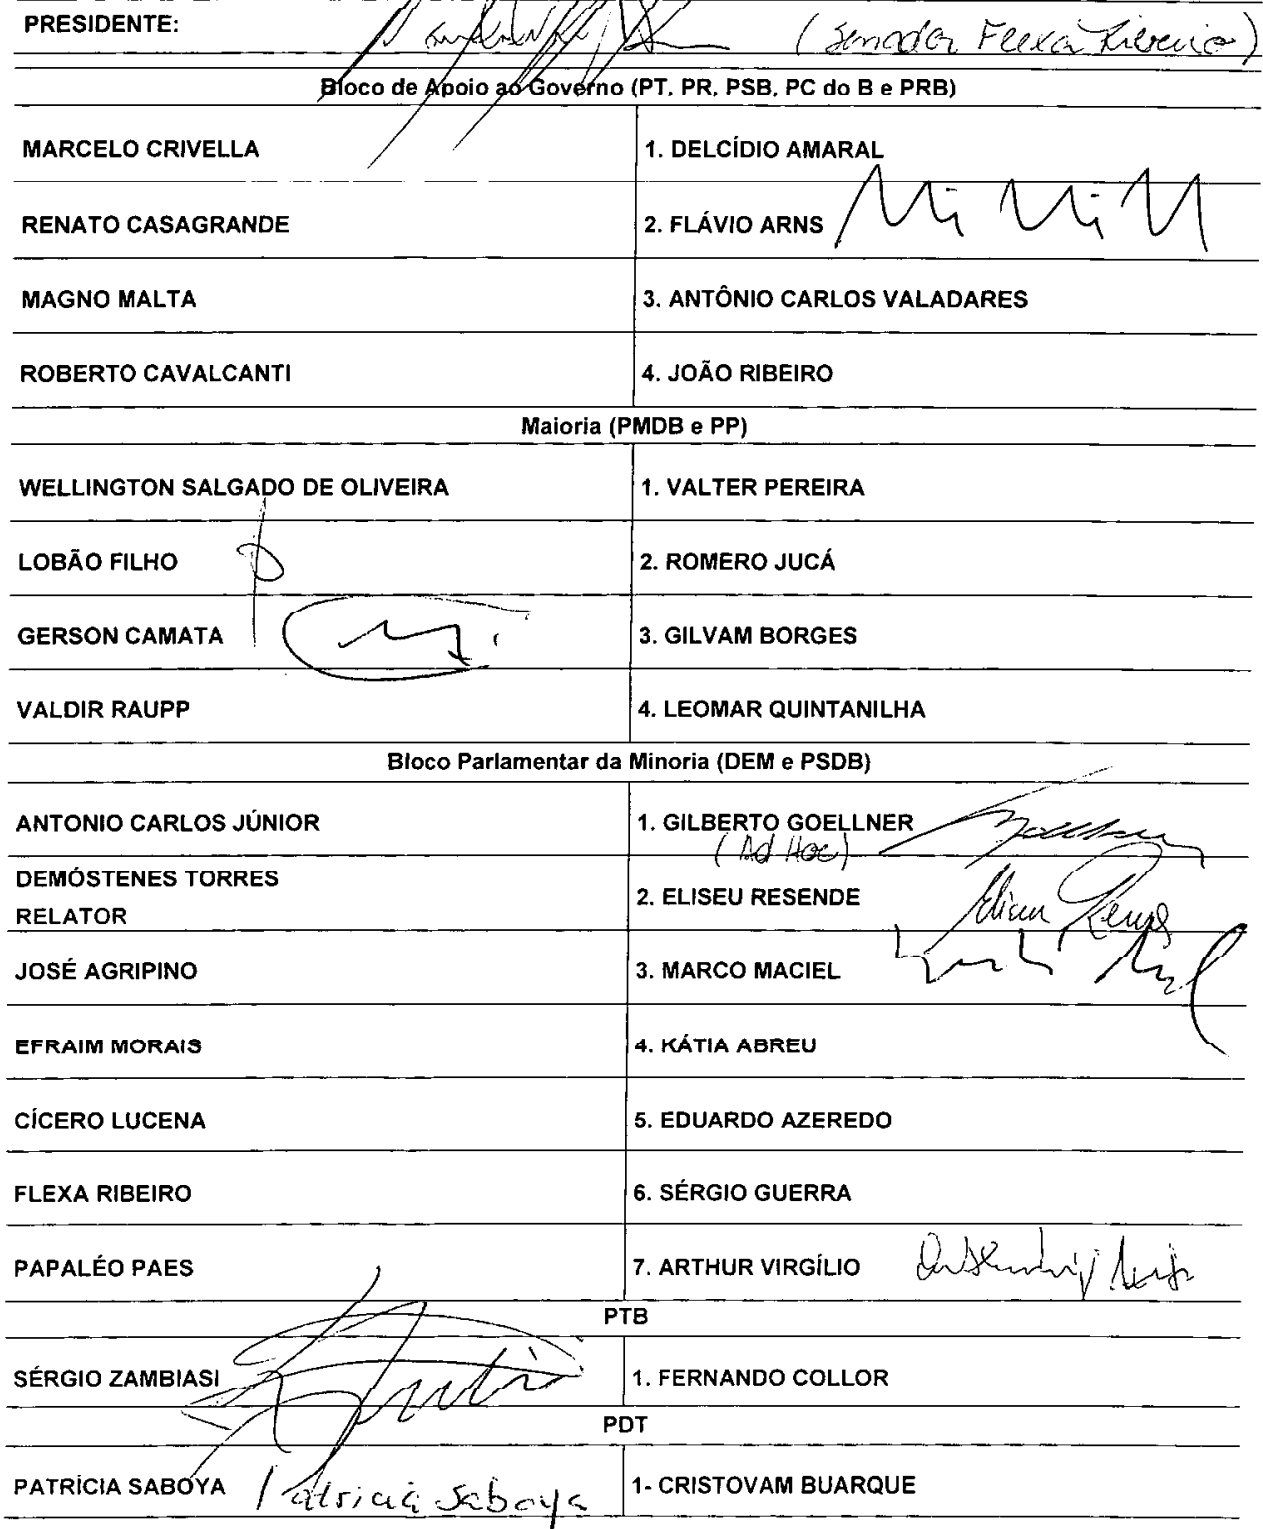 PRESIDENTE: (Senador Flexa Ribeiro)
Bloco de Apoio ao Governo (PT, PR, PSB, PC do B e PRB)
MARCELO CRIVELLA 1. DELCÍDIO AMARAL
RENATO CASAGRANDE 2. FLÁVIO ARNS
MAGNO MALTA 3. ANTÔNIO CARLOS VALADARES
ROBERTO CAVALCANTI 4. JOÃO RIBEIRO
Maioria (PMDB e PP)
WELLINGTON SALGADO DE OLIVEIRA 1. VALTER PEREIRA
LOBÃO FILHO 2. ROMERO JUCÁ
GERSON CAMATA 3. GILVAM BORGES
VALDIR RAUPP 4. LEOMAR QUINTANILHA
Bloco Parlamentar da Minoria (DEM e PSDB)
ANTONIO CARLOS JÚNIOR 1. GILBERTO GOELLNER
(Ad Hoc)
DEMÓSTENES TORRES
RELATOR 2. ELISEU RESENDE
JOSÉ AGRIPINO 3. MARCO MACIEL
EFRAIM MORAIS 4. KÁTIA ABREU
CÍCERO LUCENA 5. EDUARDO AZEREDO
FLEXA RIBEIRO 6. SÉRGIO GUERRA
PAPALÉO PAES 7. ARTHUR VIRGÍLIO
PTB
SÉRGIO ZAMBIASI 1. FERNANDO COLLOR
PDT
PATRÍCIA SABOYA Patricia Saboya 1- CRISTOVAM BUARQUE